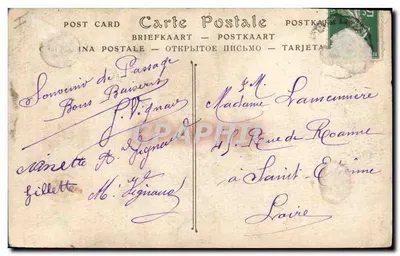 POST CARD Carte Postale POSTKA
BRIEFKAART — POSTKAART
INA POSTALE — ОТКРЫТОЕ ПИСЬМО — TARJETA
Souvenir de Passage
Bons Baisers
J. Vignaud
Ninette A. Vignaud
Gillette
M. Vignaud
M
Madame Lamconniere
45 Rue de Roanne
à Saint-Etienne
Loire